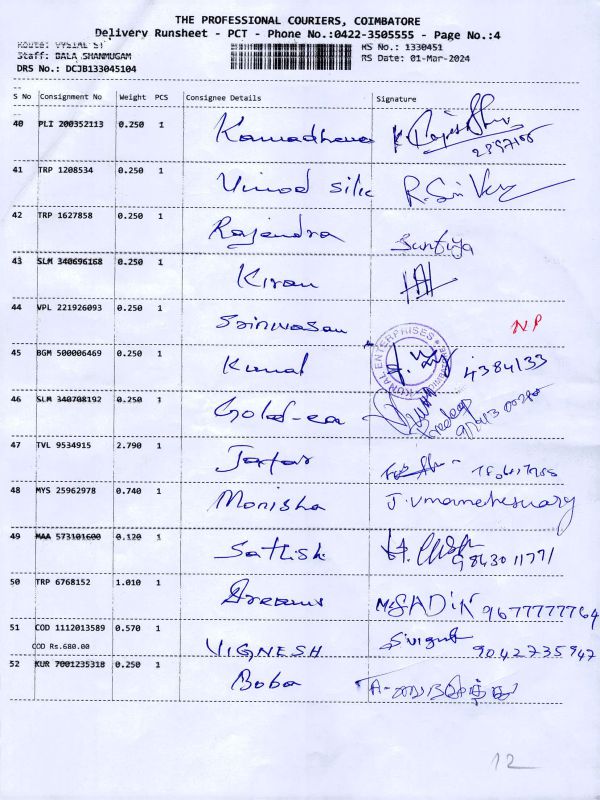 THE PROFESSIONAL COURIERS, COIMBATORE
Delivery Runsheet - PCT - Phone No.:0422-3505555 - Page No.:4
Route: VYSIAL ST
Staff: BALA SHANMUGAM
RS No.: 1330451
DRS No.: DCJB133045104
RS Date: 01-Mar-2024
S No Consignment No Weight PCS Consignee Details Signature
40 PLI 200352113 0.250 1
41 TRP 1208534 0.250 1 Vinod silk
42 TRP 1627858 0.250 1 Rajendra
43 SLM 340696168 0.250 1 Kiran
44 VPL 221926093 0.250 1 Srinivasan NP
45 BGM 500006469 0.250 1 Kunal 4384133
KUNAL ENTERPRISES
46 SLM 340708192 0.250 1 Pradeep
47 TVL 9534915 2.790 1
48 MYS 25962978 0.740 1 Monisha J.Vmamaheswary
49 MAA 573101600 0.120 1 Sathish 9843011771
50 TRP 6768152 1.010 1 Dreams M.SADIK 9677777764
51 COD 1112013589 0.570 1 VIGNESH 9042735947
COD Rs.680.00
52 KUR 7001235318 0.250 1 Boba
12